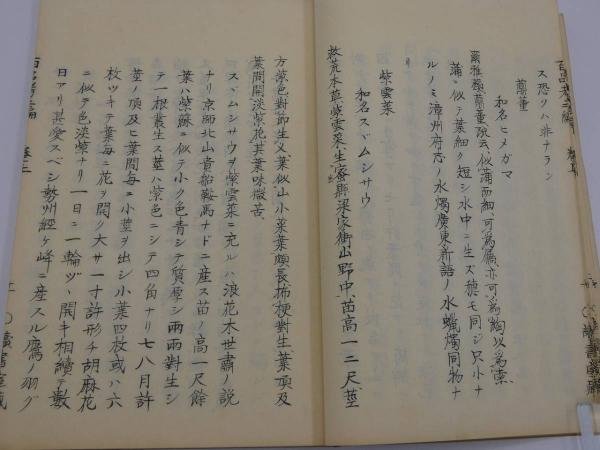 ス恐リハ非ナラン
蕑董
和名ヒメガマ
爾雅蘈蕑董疏云似蒲而細可為屩亦可為綯以為索
蒲ニ似テ葉細ク短シ水中ニ生ズ穂モ同ジ只小ナ
ルノミ漳州府志ノ水燭廣東新語ノ水蠟燭同物ナ
リ
紫雲菜
和名スヾムシサウ
救荒本草紫雲菜生密縣梁家衝山野中苗高一二尺莖
方紫色對節生叉葉似山小菜葉頗長㧊梗對生葉頂及
葉間開淡紫花其葉味微苦
スヾムシサウヲ紫雲菜ニ充ルハ浪花木世肅ノ説
ナリ京師北山貴船鞍馬ナドニ産ス苗ノ高一尺餘
葉ハ紫蘇ニ似テ小ク色青シテ質厚シ兩兩對生シ
テ一根叢生ス莖ハ紫色ニシテ四角ナリ七八月許
莖ノ頂及ヒ葉間每ニ小莖ヲ出シ小葉四枚或ハ六
枚ツキテ葉每ニ花ヲ開ク大サ一寸許形チ胡麻花
ニ似テ色淡紫ナリ一日ニ一輪ヅヽ開キ相續テ數
日アリ甚愛スベシ勢州經ケ峰ニ産スル鷹ノ羽グ